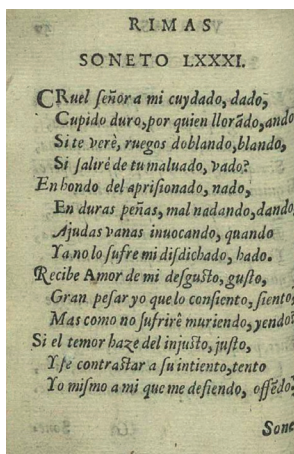 RIMAS
SONETO LXXXI.
CRuel ſeñor a mi cuydado, dado,
Cupido duro, por quien llorādo, ando
Si te verè, ruegos doblando, blando,
Si ſaliré de tu maluado, vado?
En hondo del apriſionado, nado,
En duras peñas, mal nadando, dando,
Ajudas vanas inuocando, quando
Ya no lo ſufre mi diſdichado, hado.
Recibe Amor de mi deſguſto, guſto,
Gran peſar yo que lo conſiento, ſiento,
Mas como no ſufrirè muriendo, yendo?
Si el temor haze del injuſto, juſto,
Y ſe contraſtar a ſu intiento, tento
Yo miſmo a mi que me defiendo, offēdo.
Sone